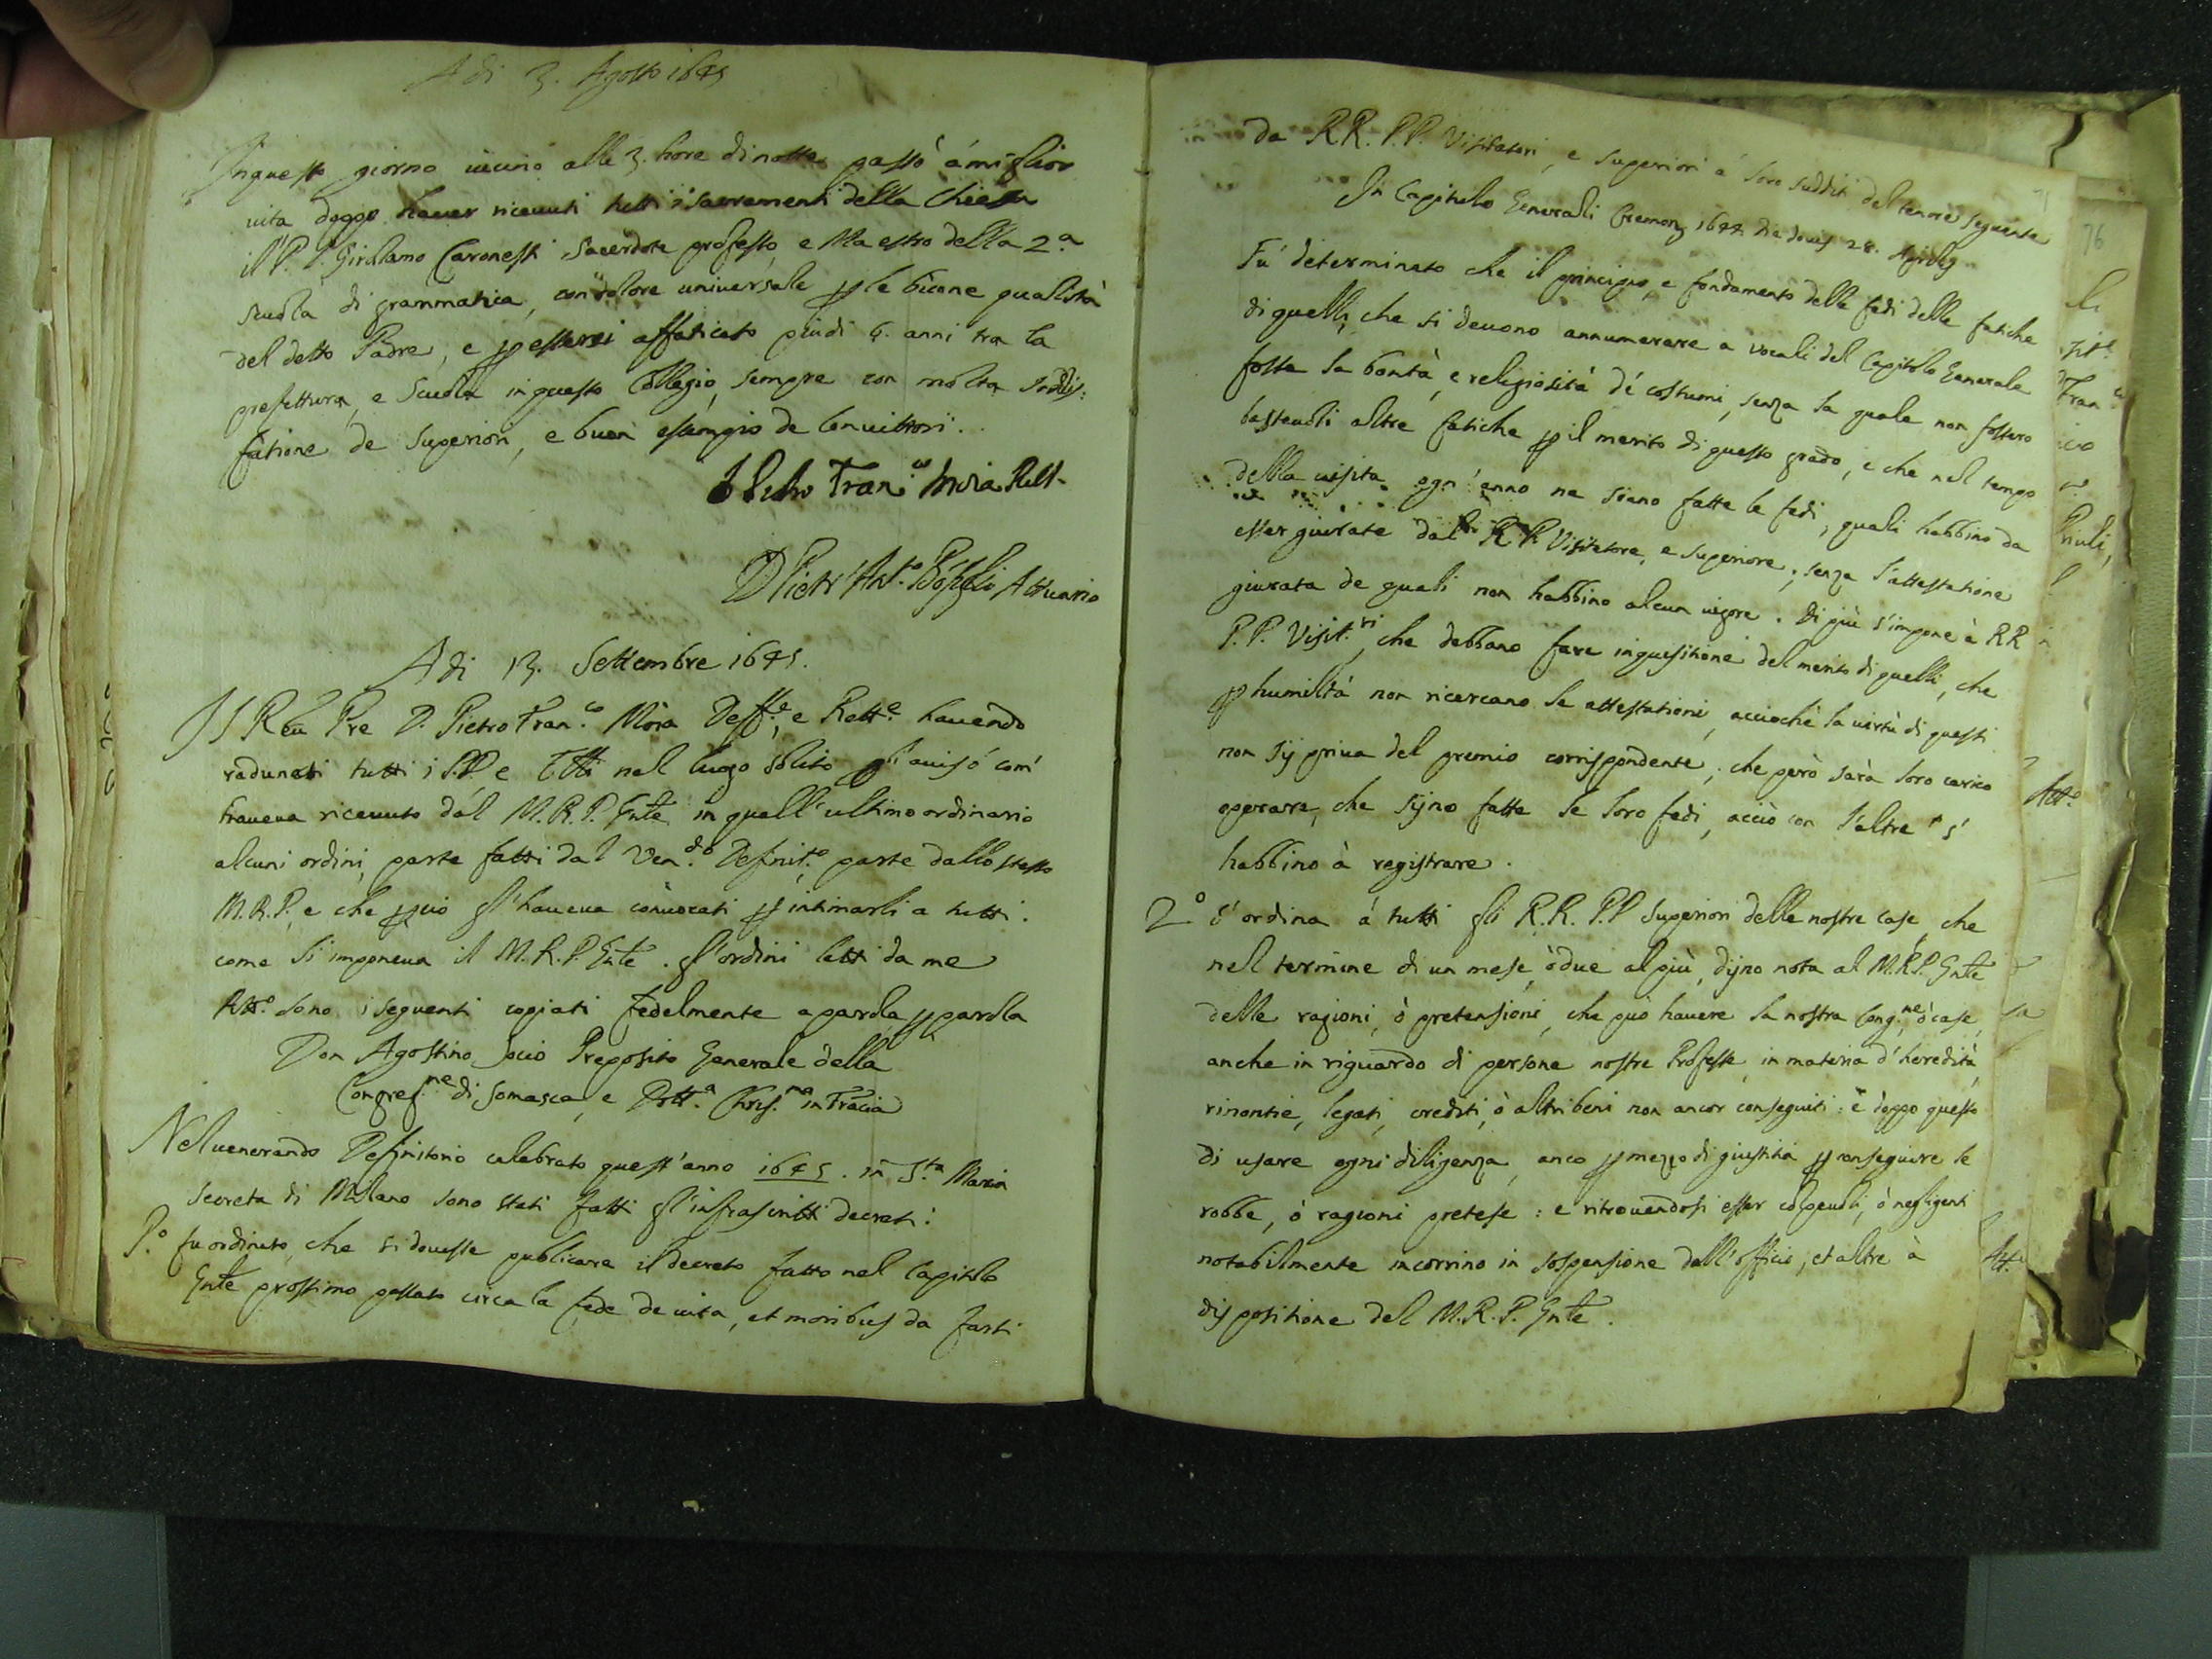 A di 3. Agosto 1645
In questo giorno vicino alle 3. hore di notte passò á miglior
vita doppo haver ricevuti tutti i sacramenti della Chiesa
il P. D. Girolamo Caronesti Sacerdote professo, e Maestro della 2.a
scuola di grammatica, con dolore universale p le buone qualità
del detto Padre, e p essersi affaticato piu di 6. anni tra la
prefettura, e Scuola in questo Collegio, sempre con molta sodis:
fatione de Superiori, e buon essempio de Convittori.
D Pietro Fran.co Moia Rett.
D Pietr'Ant.o Attuario
A di 13. Settembre 1645.
Il Reu Pre D. Pietro Fran.co Moia Deff.e, e Rett.e hauendo
radunati tutti i P.P. e ffſſi nel luogo solito gl'auisò com'
haueua riceuuto dal M.R.P. Gnłe in quell'ultimo ordinario
alcuni ordini, parte fatti dal Ven.do Definit.o, parte dallo stesso
M.R.P. e che p ciò gl'haueua conuocati p intimarli a tutti.
come li imponeua il M.R.P. Gnłe. gl'ordini letti da me
Att.o sono i seguenti copiati fedelmente a parola p parola
Don Agostino Socio Preposito Generale della
Congreg.ne di Somasca, e Dott.a Chris.na in Tracia
Nel uenerando Definitorio celebrato quest'anno 1645. in S.ta Maria
Secreta di Milano sono stati fatti gl'infrascritti decreti:
P.o fu ordinato, che si douesse publicare il decreto fatto nel Capitolo
Gnłe prossimo passato circa la fede de uita, et moribus da farsi
da R.R. P.P. Visitatori, e superiori a' loro sudditi del tenore seguente
In Capitulo Generali Cremonę 1644. Die Jouis 28. Aprilis
Fù determinato che il principio, e fondamento delle fedi delle fatiche
di quelli, che si deuono annumerare a uocali del Capitolo Generale
fosse la bontà, e religiosità de' costumi, senza la quale non fossero
basteuoli altre fatiche p il merito di questo grado, e che nel tempo
della uisita ogn'anno ne siano fatte le fedi, quali habbino da
esser giurate dal R.P. Visitatore, e superiore; senza l'attestatione
giurata de quali non habbino alcun uigore. Di più s'impone à RR
P.P. Visit.ri, che debbano fare inquisitione del merito di quelli, che
p humiltà non ricercano le attestationi, acciochè la uirtù di questi
non sij priua del premio corrispondente; che però sarà loro carico
operare, che sijno fatte le loro fedi, acciò con l'altre s'
habbino à registrare.
2.o S'ordina á tutti gli R.R. P.P. superiori delle nostre case, che
nel termine di un mese, ò due al più, dijno nota al M.R.P. Gnłe
delle ragioni, ò pretensioni, che può hauere la nostra Cong.ne, ò case,
anche in riguardo di persone nostre Professe, in materia d'heredità,
rinontie, legati, crediti, ò altri beni non ancor conseguiti: e doppo questo
di usare ogni diligenza, anco p mezzo di giustitia p conseguire le
robbe, ò ragioni pretese: e ritrouandosi esser colpeuoli, ò negligenti
notabilmente incorrino in sospensione dall'officio, et altre à
dispositione del M.R.P. Gnłe.
76
Att.o